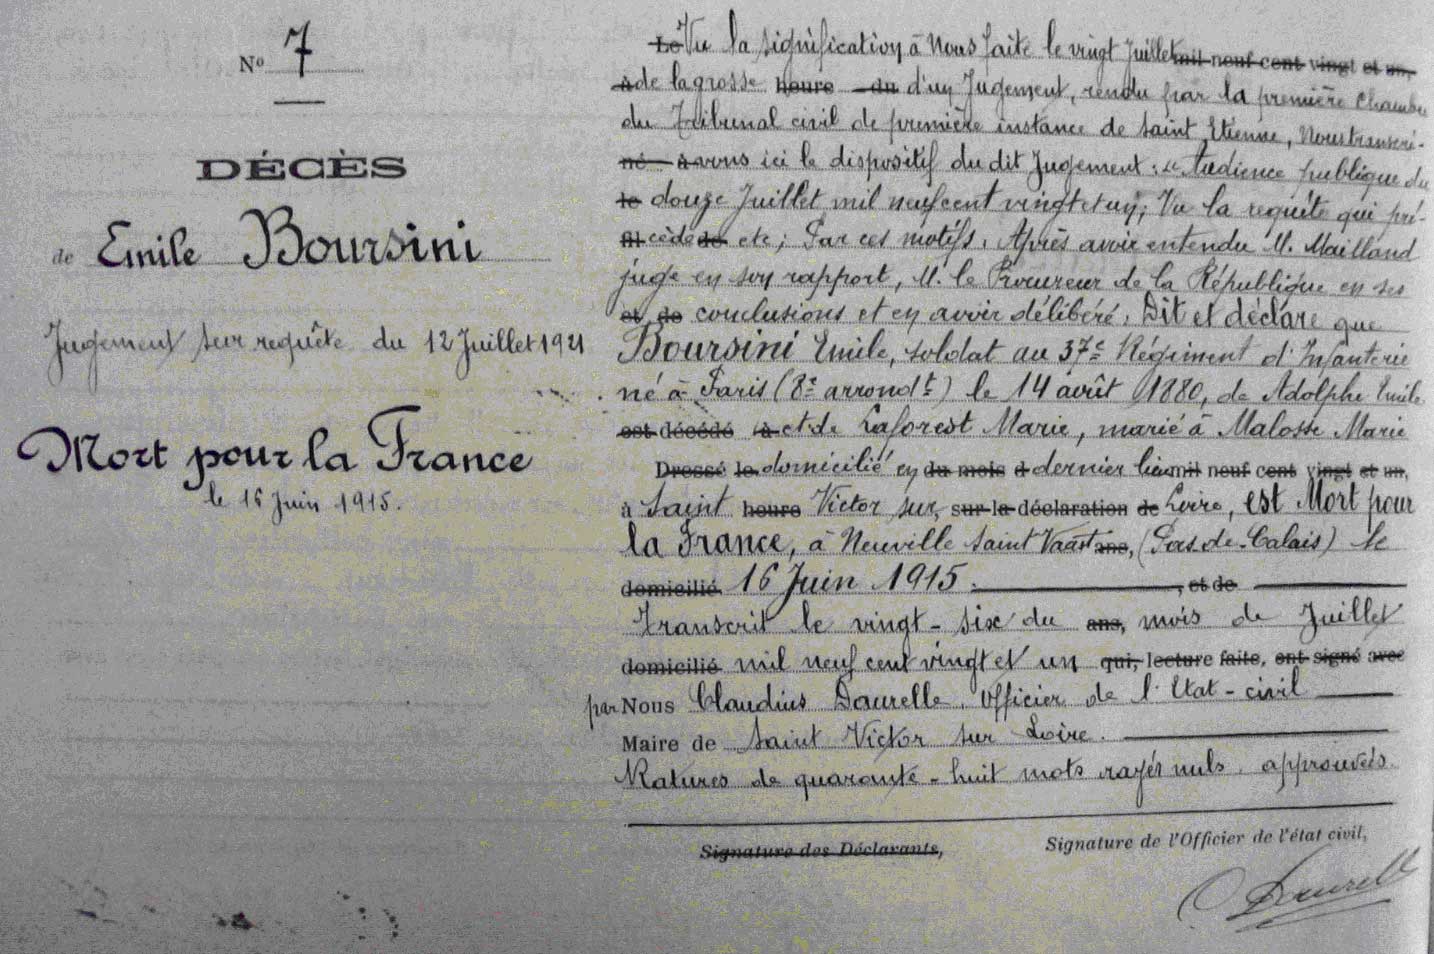 N° 7
DÉCÈS
de Emile Boursini
Jugement sur requête du 12 Juillet 1921
Mort pour la France
le 16 Juin 1915.
Le Vu la signification à Nous faite le vingt Juillet mil neuf cent vingt et un,
à de la grosse heure du d'un Jugement, rendu par la première Chambre
du Tribunal civil de première instance de Saint Etienne, Nous transcri-
né à vons ici le dispositif du dit Jugement : « Audience publique du
le douze Juillet mil neuf cent vingt et un ; Vu la requête qui pré-
fil cède de etc ; Par ces motifs. Après avoir entendu M. Mailland
juge en son rapport, M. le Procureur de la République en ses
et de conclusions et en avoir délibéré, Dit et déclare que
Boursini Emile, soldat au 37e Régiment d'Infanterie
né à Paris (8e arrondt) le 14 août 1880, de Adolphe Emile
est décédé à et de Laforest Marie, marié à Malosse Marie
Dressé le domicilié en du mois d dernier lieu mil neuf cent vingt et un,
à Saint heure Victor sur, sur la déclaration de Loire, est Mort pour
la France, à Neuville Saint Vaast ans, (Pas-de-Calais) le
domicilié 16 Juin 1915. , et de
Transcrit le vingt-six du ans, mois de Juillet
domicilié mil neuf cent vingt et un qui, lecture faite, ont signé avec
par Nous Claudius Daurelle, Officier de l'Etat-civil
Maire de Saint Victor sur Loire.
Ratures de quarante-huit mots rayés nuls. approuvés.
Signature des Déclarants,
Signature de l'Officier de l'état civil,
C Daurelle